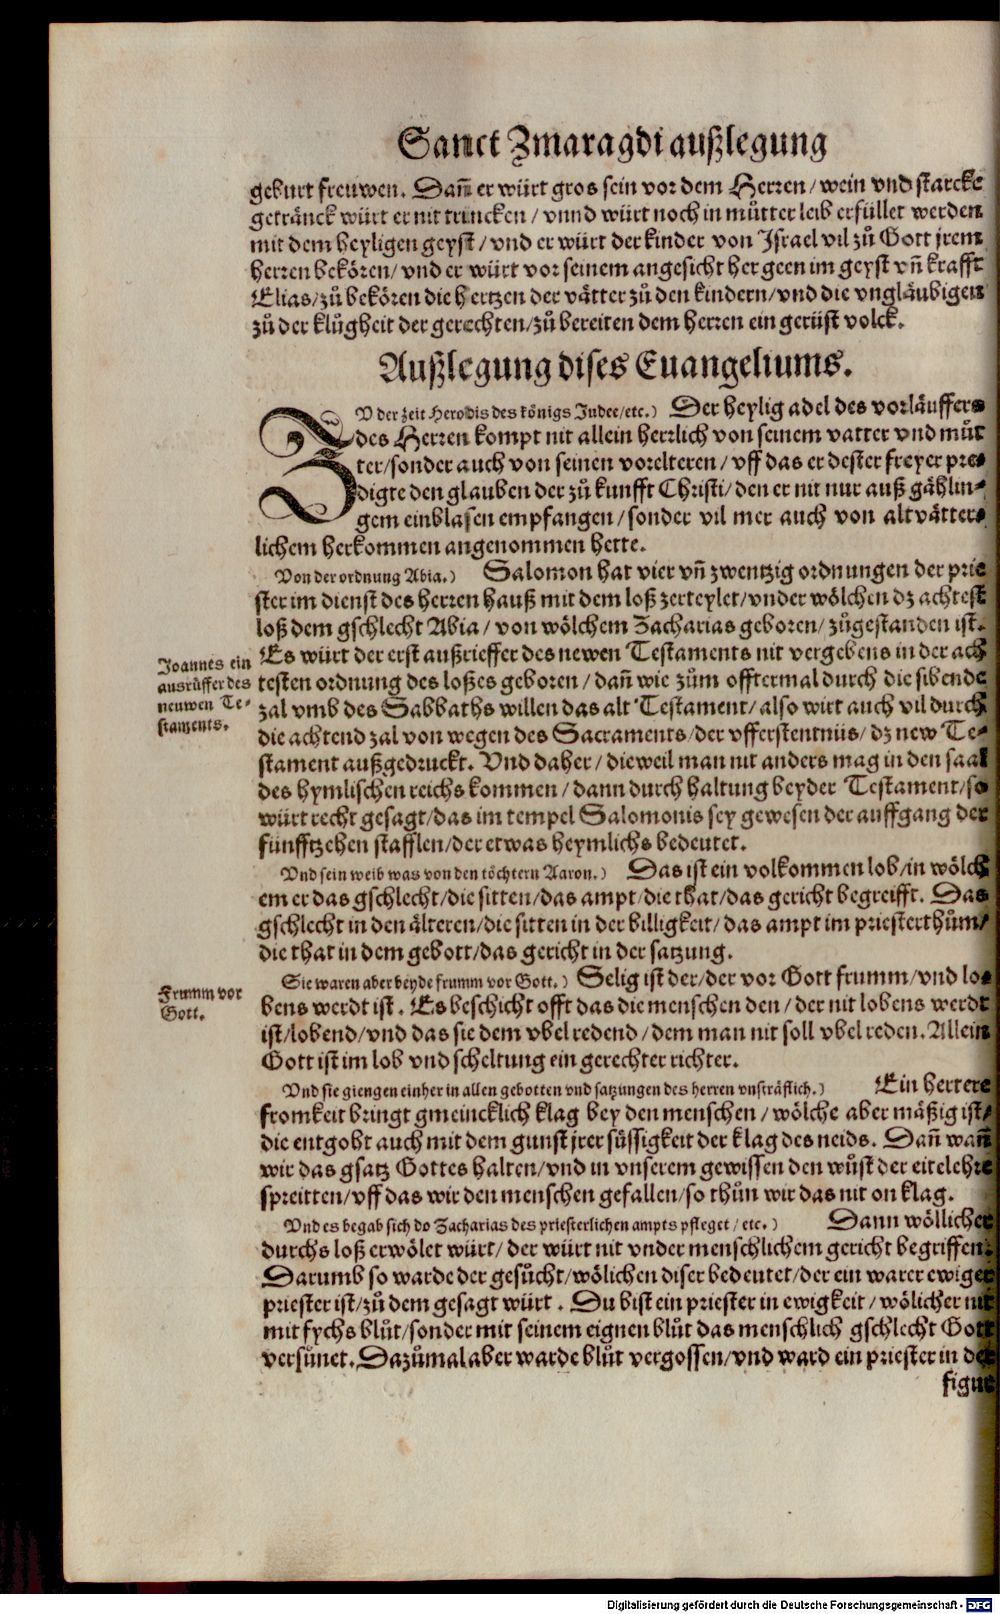 Sanct Zmaragdi außlegung
geburt freuwen. Dañ er würt gros sein vor dem Herren/wein vnd starcke
getränck würt er nit trincken/vnnd würt noch in můtter leib erfüllet werden
mit dem heyligen geyst/vnd er würt der kinder von Israel vil zů Gott jrem
herren bekören/vnd er würt vor seinem angesicht her geen im geyst vñ krafft
Elias/zů bekören die hertzen der vätter zů den kindern/vnd die vngläubigen
zů der klůgheit der gerechten/zů bereiten dem herren ein gerüst volck.
Außlegung dises Euangeliums.
ZV der zeit Herodis des königs Judee/etc.) Der heylig adel des vorläuffers
des Herren kompt nit allein herrlich von seinem vatter vnd můt
ter/sonder auch von seinen vorelteren/vff das er dester freyer pre-
digte den glauben der zů kunfft Christi/den er nit nur auß gählin-
gem einblasen empfangen/sonder vil mer auch von altvätter-
lichem herkommen angenommen hette.
Von der ordnung Abia.) Salomon hat vier vñ zwentzig ordnungen der prie
ster im dienst des herren hauß mit dem loß zerteylet/vnder wölchen dz achtest
loß dem gschlecht Abia/von wölchem Zacharias geboren/zůgestanden ist.
Joannes ein
ausrüffer des
neuwen Te-
staments.
Es würt der erst außrieffer des newen Testaments nit vergebens in der ach
testen ordnung des loßes geboren/dañ wie zům offtermal durch die sibende
zal vmb des Sabbaths willen das alt Testament/also wirt auch vil durch
die achtend zal von wegen des Sacraments/der vfferstentnüs/dz new Te-
stament außgedruckt. Vnd daher/dieweil man nit anders mag in den saal
des hymlischen reichs kommen/dann durch haltung beyder Testament/so
würt recht gesagt/das im tempel Salomonis sey gewesen der auffgang der
fünfftzehen stafflen/der etwas heymlichs bedeutet.
Vnd sein weib was von den töchtern Aaron.) Das ist ein volkommen lob/in wölch
em er das gschlecht/die sitten/das ampt/die that/das gericht begreifft. Das
gschlecht in den älteren/die sitten in der billigkeit/das ampt im priesterthům/
die that in dem gebott/das gericht in der satzung.
Frumm vor
Gott.
Sie waren aber beyde frumm vor Gott.) Selig ist der/der vor Gott frumm/vnd lo-
bens werdt ist. Es beschicht offt das die menschen den/der nit lobens werdt
ist/lobend/vnd das sie dem vbel redend/dem man nit soll vbel reden. Allein
Gott ist im lob vnd scheltung ein gerechter richter.
Vnd sie giengen einher in allen gebotten vnd satzungen des herren vnsträflich.) Ein hertere
fromkeit bringt gmeincklich klag bey den menschen/wölche aber mäßig ist/
die entgoht auch mit dem gunst jrer süssigkeit der klag des neids. Dañ wañ
wir das gsatz Gottes halten/vnd in vnserem gewissen den wůst der eitelehre
spreitten/vff das wir den menschen gefallen/so thůn wir das nit on klag.
Vnd es begab sich do Zacharias des priesterlichen ampts pfleget/etc.) Dann wöllicher
durchs loß erwölet würt/der würt nit vnder menschlichem gericht begriffen.
Darumb so warde der gesůcht/wölichen diser bedeutet/der ein warer ewiger
priester ist/zů dem gesagt würt. Du bist ein priester in ewigkeit/wölicher nit
mit fychs blůt/sonder mit seinem eignen blůt das menschlich gschlecht Gott
versůnet. Dazůmal aber warde blůt vergossen/vnd ward ein priester in der
figur
Digitalisierung gefördert durch die Deutsche Forschungsgemeinschaft - DFG